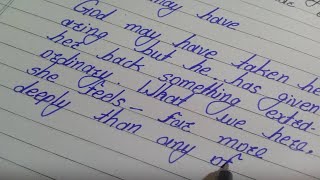 may have
God may have taken he
aring but he has given
her back something extra-
ordinary. What we here,
she feels- for more
deeply than any of